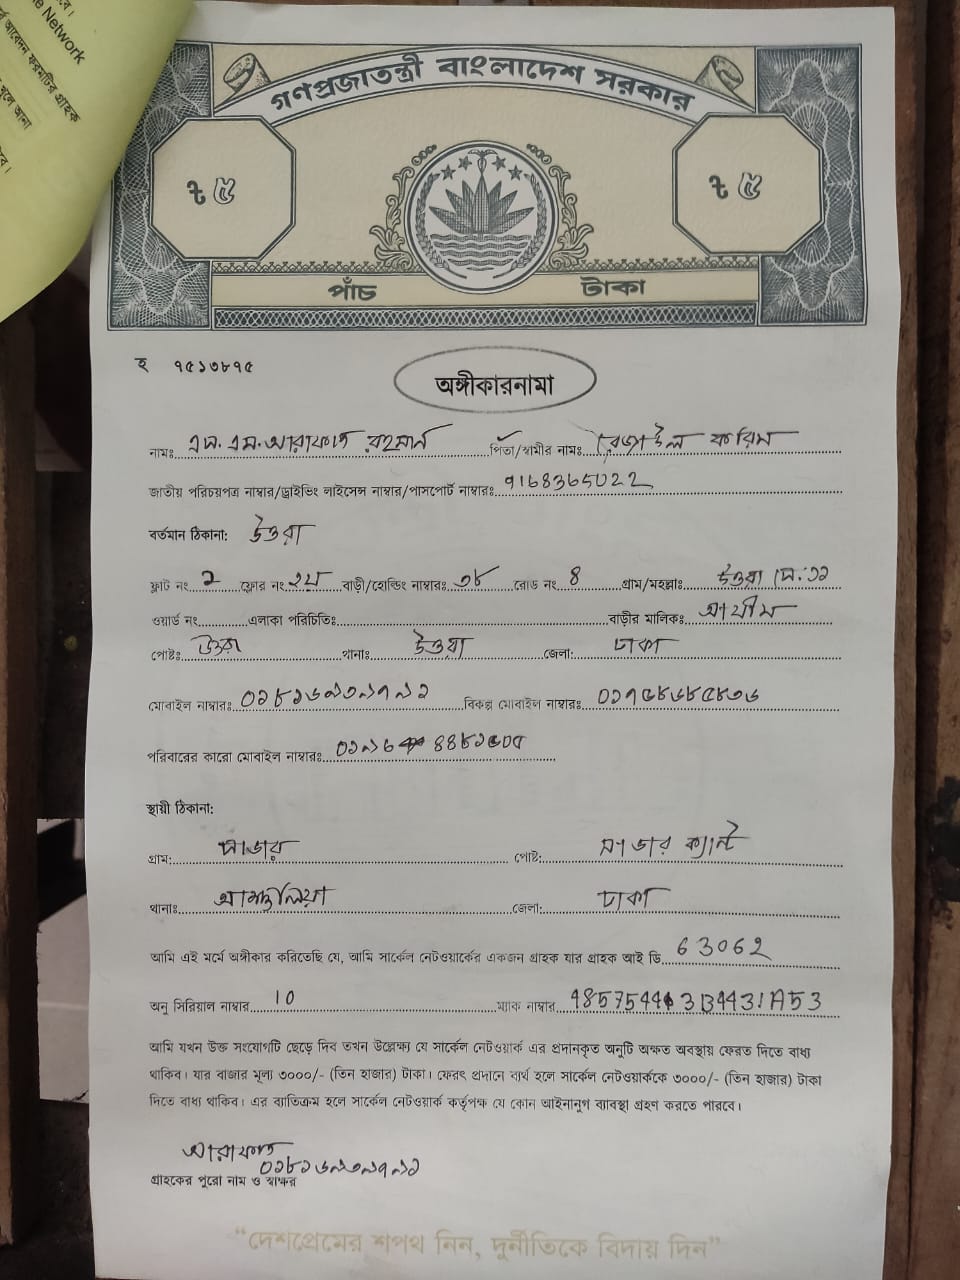 গণপ্রজাতন্ত্রী বাংলাদেশ সরকার
৳ ৫ ৳ ৫
পাঁচ টাকা
হ ৭৫১৩৮৭৫
অঙ্গীকারনামা
নামঃ এস. এম. আরাফাত রহমান পিতা/স্বামীর নামঃ রেজাউল করিম
জাতীয় পরিচয়পত্র নাম্বার/ড্রাইভিং লাইসেন্স নাম্বার/পাসপোর্ট নাম্বারঃ 9168365022
বর্তমান ঠিকানা: উত্তরা
ফ্লাট নং ২ ফ্লোর নং ২য় বাড়ী/হোল্ডিং নাম্বারঃ ৩৮ রোড নং ৪ গ্রাম/মহল্লাঃ উত্তরা সে.১১
ওয়ার্ড নং এলাকা পরিচিতিঃ বাড়ীর মালিকঃ
পোষ্টঃ উত্তরা থানাঃ উত্তরা জেলা: ঢাকা
মোবাইল নাম্বারঃ ০১৮১৬৯৩৯৭৯১ বিকল্প মোবাইল নাম্বারঃ
পরিবারের কারো মোবাইল নাম্বারঃ
স্থায়ী ঠিকানা:
গ্রাম: সাভার পোষ্ট: সাভার ক্যান্ট
থানাঃ আশুলিয়া জেলা: ঢাকা
আমি এই মর্মে অঙ্গীকার করিতেছি যে, আমি সার্কেল নেটওয়ার্কের একজন গ্রাহক যার গ্রাহক আই ডি 63062
অনু সিরিয়াল নাম্বার 10 ম্যাক নাম্বার
আমি যখন উক্ত সংযোগটি ছেড়ে দিব তখন উল্লেক্ষ্য যে সার্কেল নেটওয়ার্ক এর প্রদানকৃত অনুটি অক্ষত অবস্থায় ফেরত দিতে বাধ্য
থাকিব। যার বাজার মূল্য ৩০০০/- (তিন হাজার) টাকা। ফেরৎ প্রদানে ব্যর্থ হলে সার্কেল নেটওয়ার্ককে ৩০০০/- (তিন হাজার) টাকা
দিতে বাধ্য থাকিব। এর ব্যতিক্রম হলে সার্কেল নেটওয়ার্ক কর্তৃপক্ষ যে কোন আইনানুগ ব্যাবস্থা গ্রহণ করতে পারবে।
আরাফাত
০১৮১৬৯৩৯৭৯১
গ্রাহকের পুরো নাম ও স্বাক্ষর
“দেশপ্রেমের শপথ নিন, দুর্নীতিকে বিদায় দিন”